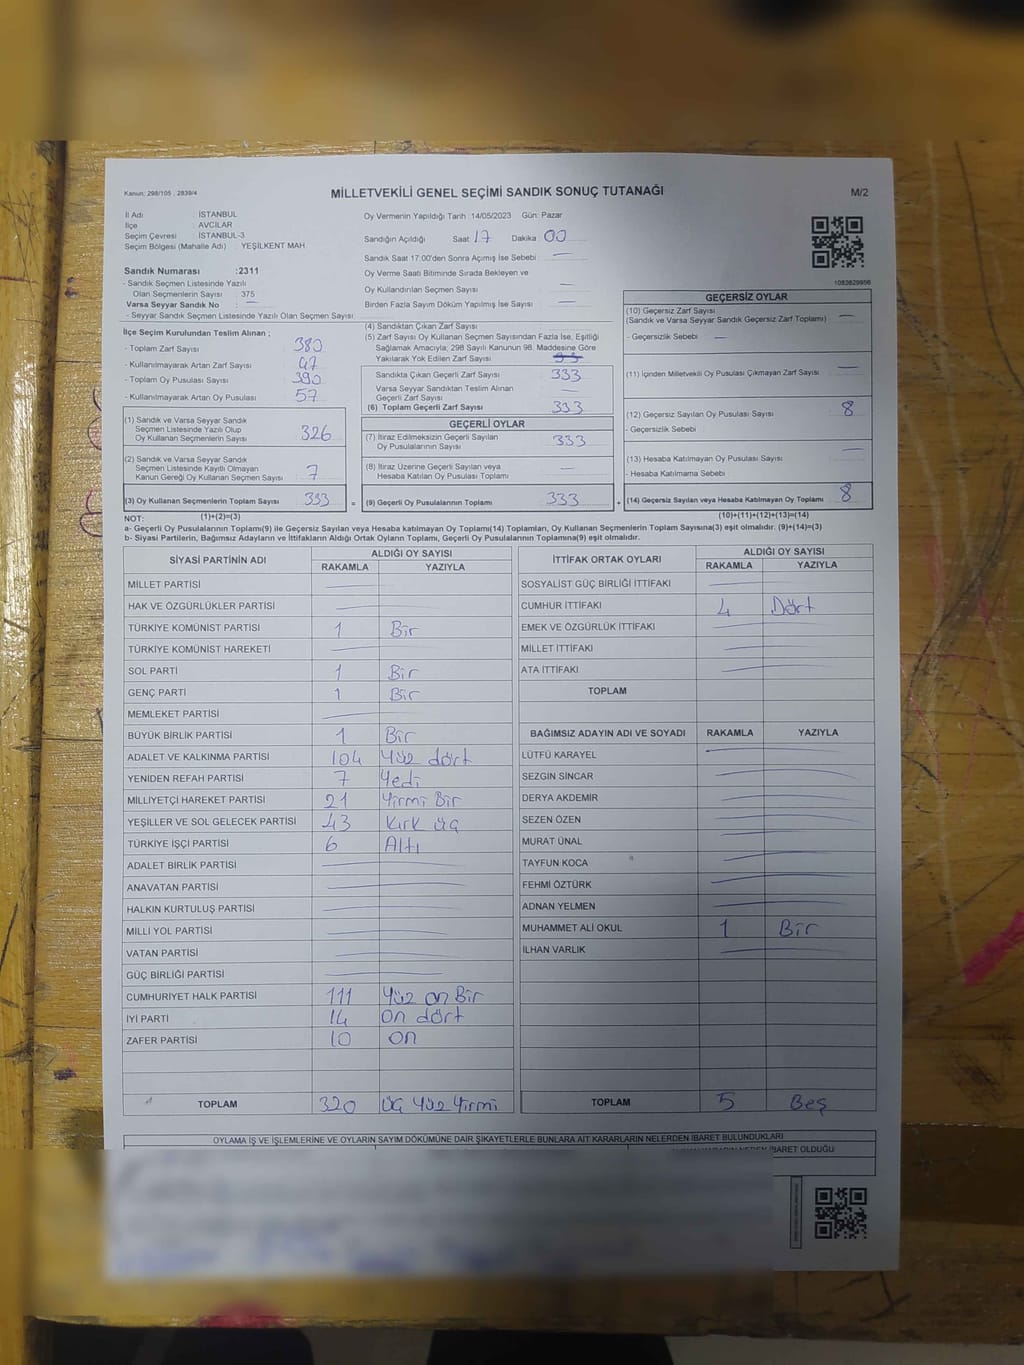 Kanun: 298/105 , 2839/4
MİLLETVEKİLİ GENEL SEÇİMİ SANDIK SONUÇ TUTANAĞI
M/2
İl Adı : İSTANBUL
İlçe : AVCILAR
Seçim Çevresi : İSTANBUL-3
Seçim Bölgesi (Mahalle Adı) : YEŞİLKENT MAH
Sandık Numarası :2311
- Sandık Seçmen Listesinde Yazılı
Olan Seçmenlerin Sayısı : 375
Varsa Seyyar Sandık No : —
- Seyyar Sandık Seçmen Listesinde Yazılı Olan Seçmen Sayısı:
Oy Vermenin Yapıldığı Tarih :14/05/2023 Gün: Pazar
Sandığın Açıldığı Saat 17 Dakika 00
Sandık Saat 17:00'den Sonra Açımış İse Sebebi —
Oy Verme Saati Bitiminde Sırada Bekleyen ve
Oy Kullandırılan Seçmen Sayısı —
Birden Fazla Sayım Döküm Yapılmış İse Sayısı —
1082829956
İlçe Seçim Kurulundan Teslim Alınan ;
- Toplam Zarf Sayısı 380
- Kullanılmayarak Artan Zarf Sayısı 47
- Toplam Oy Pusulası Sayısı 390
- Kullanılmayarak Artan Oy Pusulası 57
(1) Sandık ve Varsa Seyyar Sandık
Seçmen Listesinde Yazılı Olup
Oy Kullanan Seçmenlerin Sayısı 326
(2) Sandık ve Varsa Seyyar Sandık
Seçmen Listesinde Kayıtlı Olmayan
Kanun Gereği Oy Kullanan Seçmen Sayısı 7
(3) Oy Kullanan Seçmenlerin Toplam Sayısı 333 =
(1)+(2)=(3)
(4) Sandıktan Çıkan Zarf Sayısı
(5) Zarf Sayısı Oy Kullanan Seçmen Sayısından Fazla İse, Eşitliği
Sağlamak Amacıyla; 298 Sayılı Kanunun 98. Maddesine Göre
Yakılarak Yok Edilen Zarf Sayısı
Sandıkta Çıkan Geçerli Zarf Sayısı 333
Varsa Seyyar Sandıktan Teslim Alınan
Geçerli Zarf Sayısı —
(6) Toplam Geçerli Zarf Sayısı 333
GEÇERLİ OYLAR
(7) İtiraz Edilmeksizin Geçerli Sayılan
Oy Pusulalarının Sayısı 333
(8) İtiraz Üzerine Geçerli Sayılan veya
Hesaba Katılan Oy Pusulası Toplamı —
(9) Geçerli Oy Pusulalarının Toplamı 333 +
GEÇERSİZ OYLAR
(10) Geçersiz Zarf Sayısı
(Sandık ve Varsa Seyyar Sandık Geçersiz Zarf Toplamı) —
- Geçersizlik Sebebi —
(11) İçinden Milletvekili Oy Pusulası Çıkmayan Zarf Sayısı —
(12) Geçersiz Sayılan Oy Pusulası Sayısı 8
- Geçersizlik Sebebi
(13) Hesaba Katılmayan Oy Pusulası Sayısı —
- Hesaba Katılmama Sebebi
(14) Geçersiz Sayılan veya Hesaba Katılmayan Oy Toplamı 8
(10)+(11)+(12)+(13)=(14)
NOT:
a- Geçerli Oy Pusulalarının Toplamı(9) ile Geçersiz Sayılan veya Hesaba katılmayan Oy Toplamı(14) Toplamları, Oy Kullanan Seçmenlerin Toplam Sayısına(3) eşit olmalıdır. (9)+(14)=(3)
b- Siyasi Partilerin, Bağımsız Adayların ve İttifakların Aldığı Ortak Oyların Toplamı, Geçerli Oy Pusulalarının Toplamına(9) eşit olmalıdır.
SİYASİ PARTİNİN ADI ALDIĞI OY SAYISI
RAKAMLA YAZIYLA
MİLLET PARTİSİ —
HAK VE ÖZGÜRLÜKLER PARTİSİ —
TÜRKİYE KOMÜNİST PARTİSİ 1 Bir
TÜRKİYE KOMÜNİST HAREKETİ —
SOL PARTİ 1 Bir
GENÇ PARTİ 1 Bir
MEMLEKET PARTİSİ —
BÜYÜK BİRLİK PARTİSİ 1 Bir
ADALET VE KALKINMA PARTİSİ 104 Yüz dört
YENİDEN REFAH PARTİSİ 7 Yedi
MİLLİYETÇİ HAREKET PARTİSİ 21 Yirmi Bir
YEŞİLLER VE SOL GELECEK PARTİSİ 43 Kırk üç
TÜRKİYE İŞÇİ PARTİSİ 6 Altı
ADALET BİRLİK PARTİSİ —
ANAVATAN PARTİSİ —
HALKIN KURTULUŞ PARTİSİ —
MİLLİ YOL PARTİSİ —
VATAN PARTİSİ —
GÜÇ BİRLİĞİ PARTİSİ —
CUMHURİYET HALK PARTİSİ 111 Yüz on Bir
İYİ PARTİ 14 On dört
ZAFER PARTİSİ 10 on
TOPLAM 320 üç Yüz Yirmi
İTTİFAK ORTAK OYLARI ALDIĞI OY SAYISI
RAKAMLA YAZIYLA
SOSYALİST GÜÇ BİRLİĞİ İTTİFAKI —
CUMHUR İTTİFAKI 4 Dört
EMEK VE ÖZGÜRLÜK İTTİFAKI —
MİLLET İTTİFAKI —
ATA İTTİFAKI —
TOPLAM
BAĞIMSIZ ADAYIN ADI VE SOYADI RAKAMLA YAZIYLA
LÜTFÜ KARAYEL —
SEZGİN SİNCAR —
DERYA AKDEMİR —
SEZEN ÖZEN —
MURAT ÜNAL —
TAYFUN KOCA —
FEHMİ ÖZTÜRK —
ADNAN YELMEN —
MUHAMMET ALİ OKUL 1 Bir
İLHAN VARLIK —
TOPLAM 5 Beş
OYLAMA İŞ VE İŞLEMLERİNE VE OYLARIN SAYIM DÖKÜMÜNE DAİR ŞİKAYETLERLE BUNLARA AİT KARARLARIN NELERDEN İBARET BULUNDUKLARI
İBARET OLDUĞU